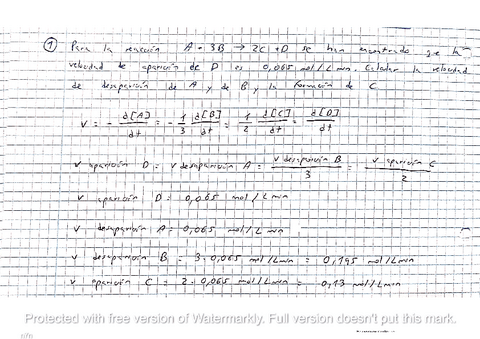 ① Para la reacción A + 3B → 2C + D se han encontrado que la
velocidad de aparición de D es 0,065 mol/L min. Calcular la velocidad
de desaparición de A y de B y la formación de C
v = - d[A]/dt = - 1/3 d[B]/dt = 1/2 d[C]/dt = d[D]/dt
v aparición D = v desaparición A = v desaparición B / 3 = v aparición C / 2
v aparición D = 0,065 mol/L min
v desaparición A = 0,065 mol/L min
v desaparición B = 3·0,065 mol/L min = 0,195 mol/L min
v aparición C = 2·0,065 mol/L min = 0,13 mol/L min
Protected with free version of Watermarkly. Full version doesn't put this mark.